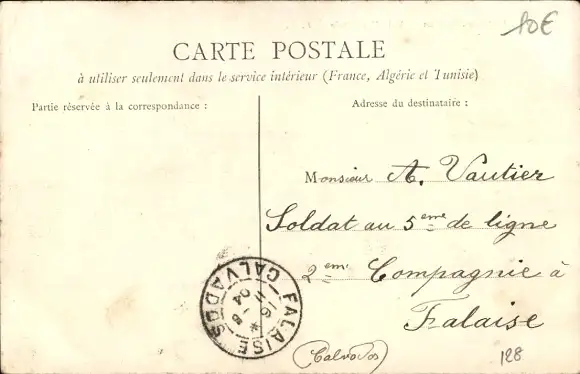 10€
CARTE POSTALE
à utiliser seulement dans le service intérieur (France, Algérie et Tunisie)
Partie réservée à la correspondance :
Adresse du destinataire :
Monsieur A. Vautier
Soldat au 5eme de ligne
2em Compagnie à
Falaise
(Calvados)
FALAISE
CALVADOS
16
8-
04
128